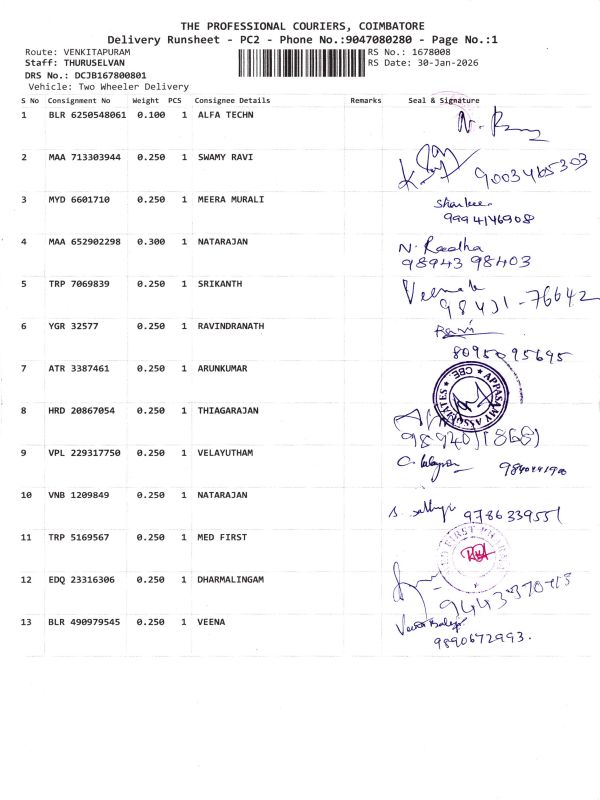 THE PROFESSIONAL COURIERS, COIMBATORE
Delivery Runsheet - PC2 - Phone No.:9047080280 - Page No.:1
Route: VENKITAPURAM RS No.: 1678008
Staff: THURUSELVAN RS Date: 30-Jan-2026
DRS No.: DCJB167800801
Vehicle: Two Wheeler Delivery
S No Consignment No Weight PCS Consignee Details Remarks Seal & Signature
1 BLR 6250548061 0.100 1 ALFA TECHN
2 MAA 713303944 0.250 1 SWAMY RAVI 9003465303
3 MYD 6601710 0.250 1 MEERA MURALI
9994146908
4 MAA 652902298 0.300 1 NATARAJAN N. Raadha
98943 98403
5 TRP 7069839 0.250 1 SRIKANTH
98431-76642
6 YGR 32577 0.250 1 RAVINDRANATH Ravi
8095095695
7 ATR 3387461 0.250 1 ARUNKUMAR APPASAMY ASSOCIATES ★ CBE. ★
8 HRD 20867054 0.250 1 THIAGARAJAN
9 VPL 229317750 0.250 1 VELAYUTHAM
10 VNB 1209849 0.250 1 NATARAJAN 9786339551
11 TRP 5169567 0.250 1 MED FIRST
12 EDQ 23316306 0.250 1 DHARMALINGAM
13 BLR 490979545 0.250 1 VEENA
9890672993.